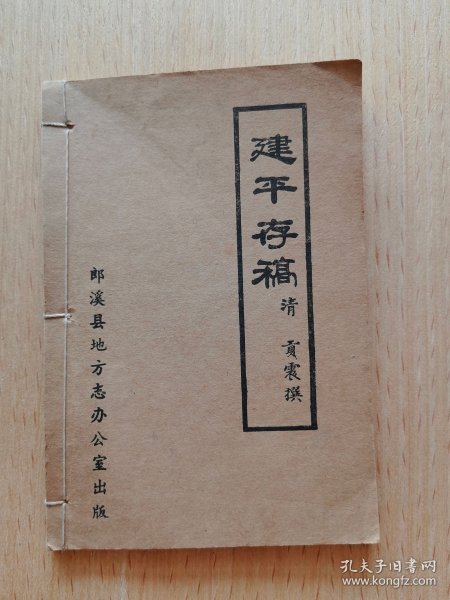 建平存稿
清 贡震撰
郎溪县地方志办公室出版
孔夫子旧书网
www.kongfz.com